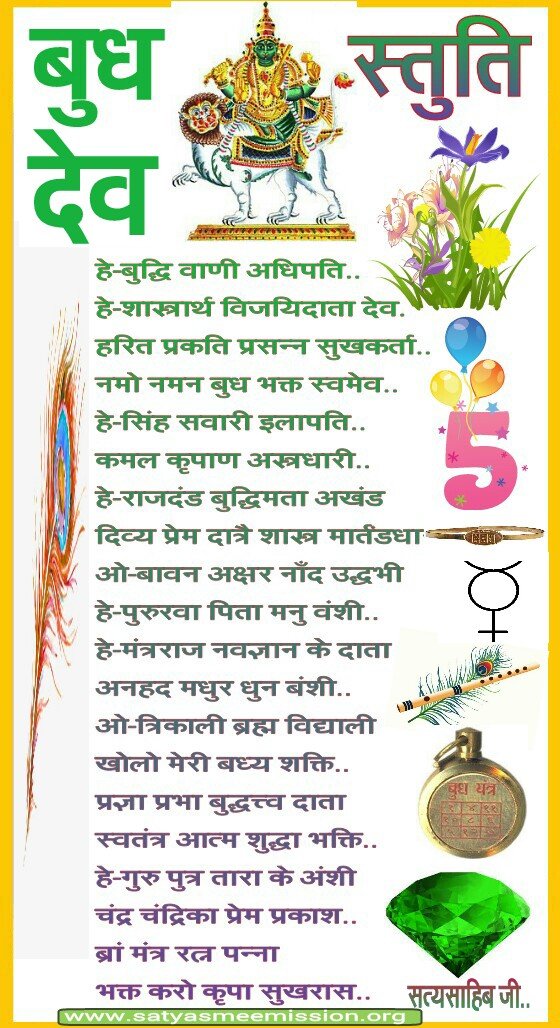 बुध
देव
स्तुति
हे-बुद्धि वाणी अधिपति..
हे-शास्त्रार्थ विजयिदाता देव.
हरित प्रकति प्रसन्न सुखकर्ता..
नमो नमन बुध भक्त स्वमेव..
हे-सिंह सवारी इलापति..
कमल कृपाण अस्त्रधारी..
हे-राजदंड बुद्धिमता अखंड
दिव्य प्रेम दात्रै शास्त्र मार्तंडधा
ओ-बावन अक्षर नाँद उद्धभी
हे-पुरुरवा पिता मनु वंशी..
हे-मंत्रराज नवज्ञान के दाता
अनहद मधुर धुन बंशी..
ओ-त्रिकाली ब्रह्म विद्याली
खोलो मेरी बध्य शक्ति..
प्रज्ञा प्रभा बुद्धत्त्व दाता
स्वतंत्र आत्म शुद्धा भक्ति..
हे-गुरु पुत्र तारा के अंशी
चंद्र चंद्रिका प्रेम प्रकाश..
ब्रां मंत्र रत्न पन्ना
भक्त करो कृपा सुखरास..
5
बुध यंत्र
सत्यसाहिब जी..
www.satyasmeemission.org